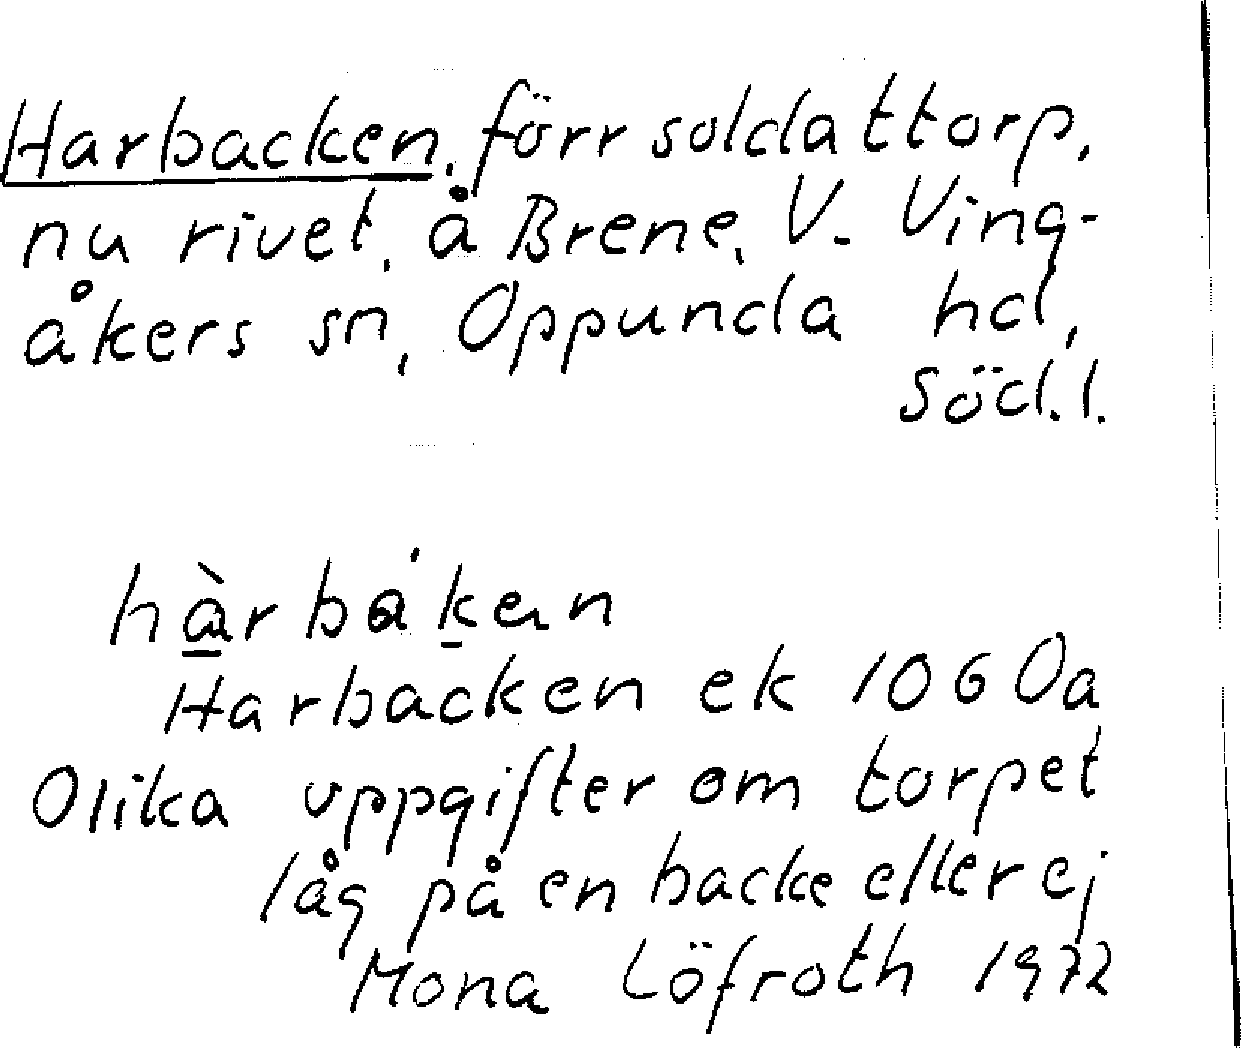 Harbacken, förr soldattorp,
nu rivet, å Brene, V. Ving-
åkers sn, Oppunda hd,
Söd.l.
hàrbákan
Harbacken ek 106 0a
Olika uppgifter om torpet
låg på en backe eller ej
Mona Löfroth 1972